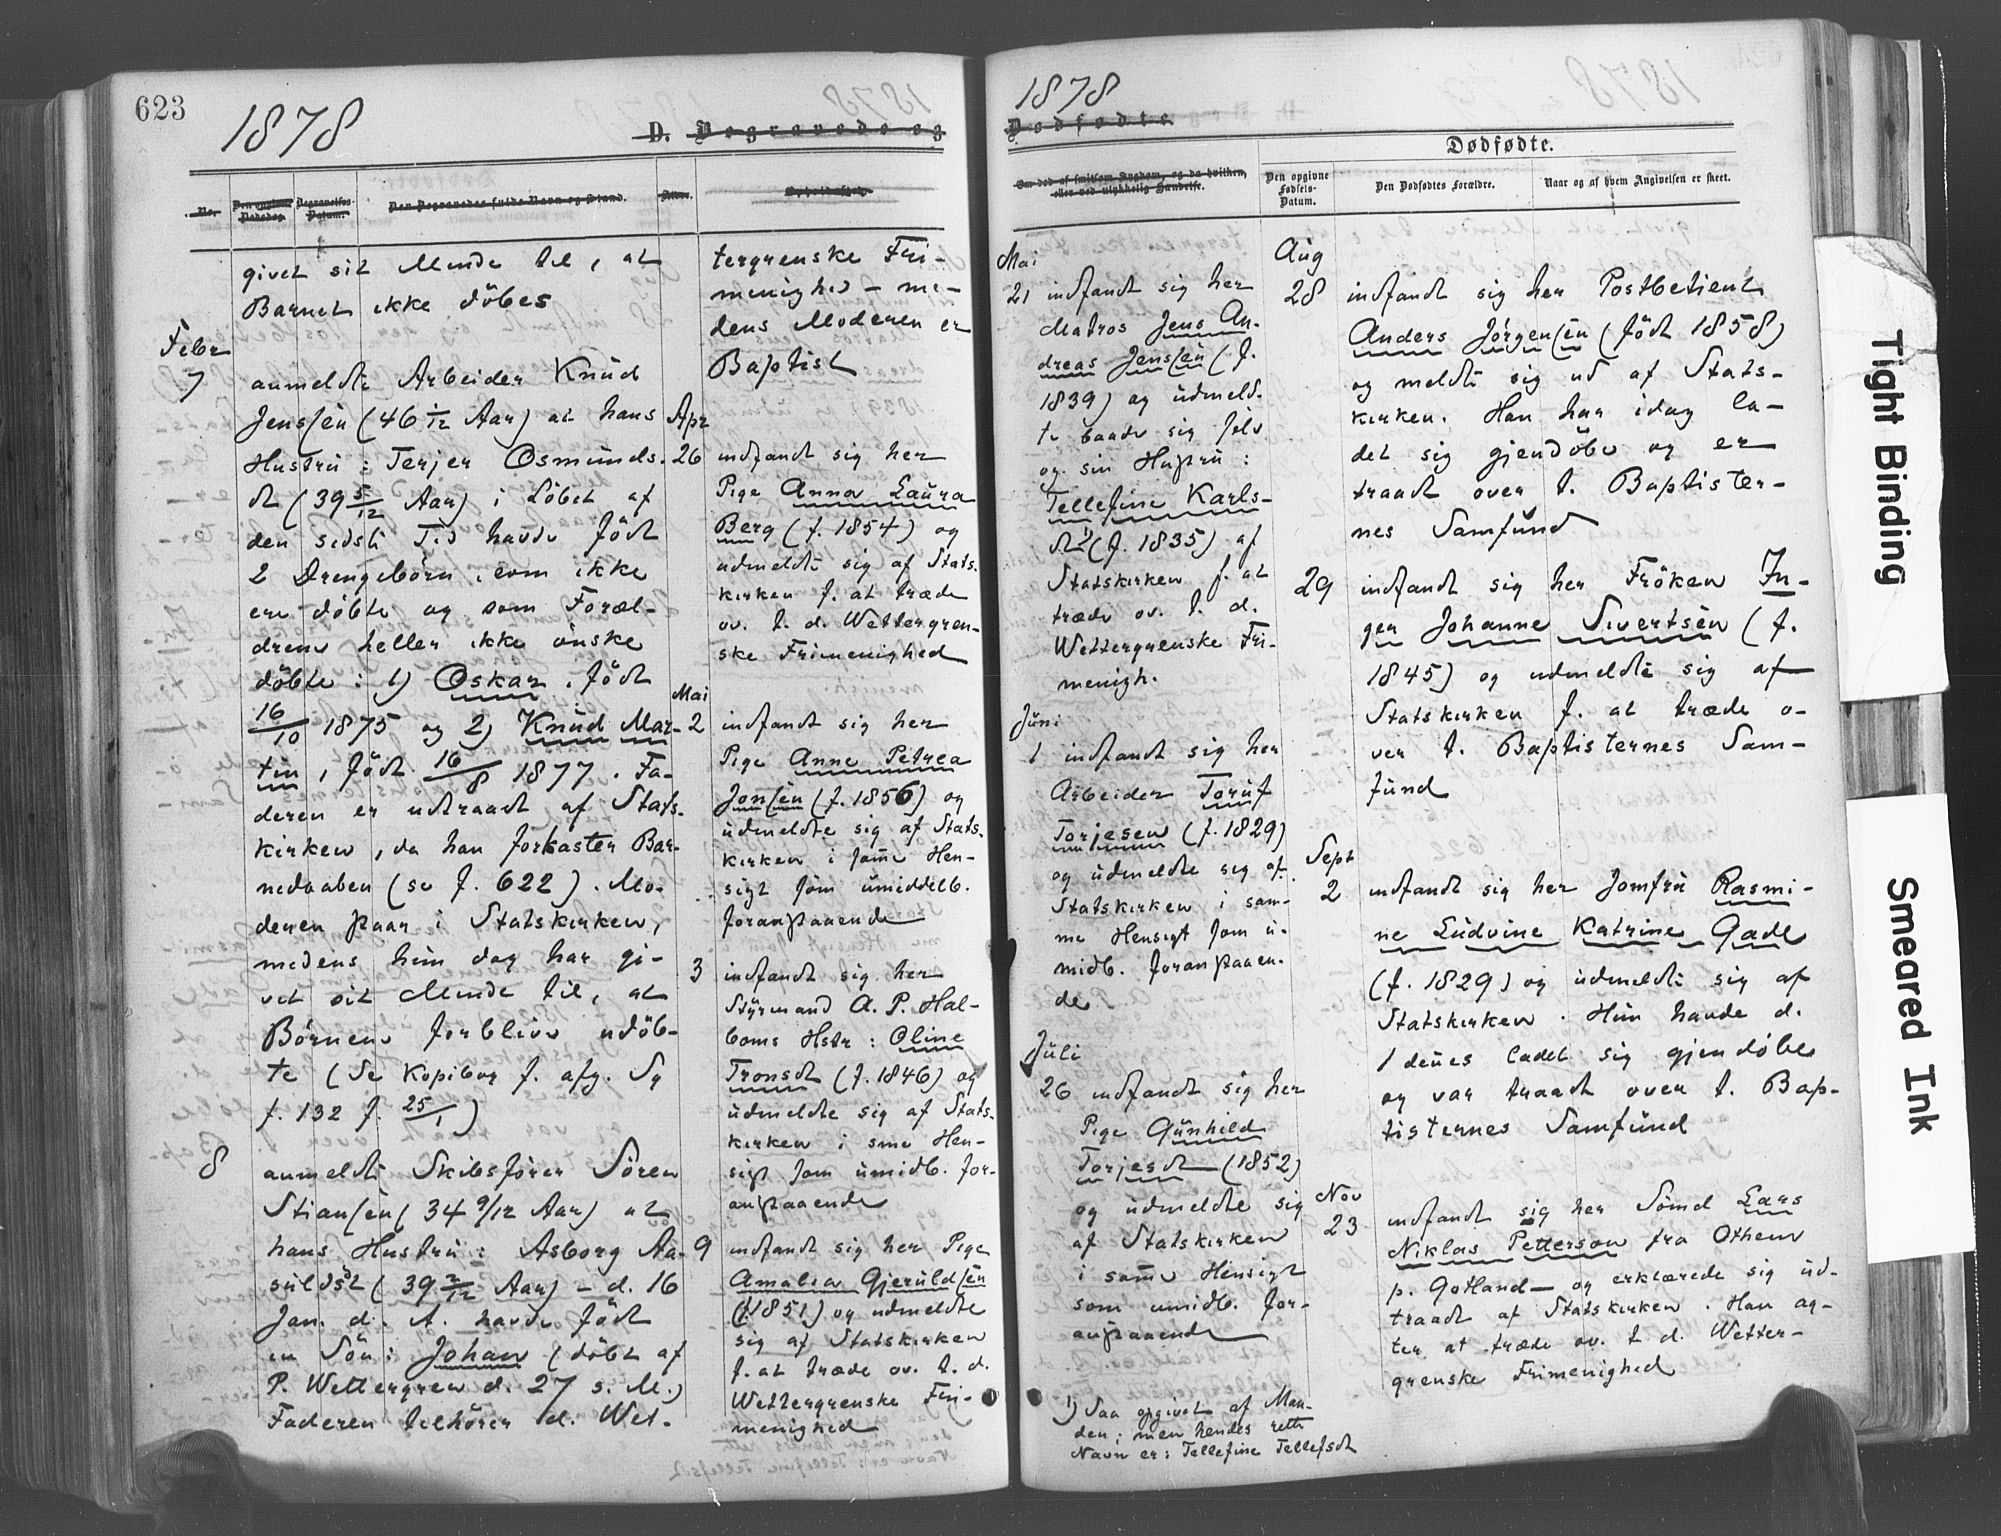 623
1878
D. Begravede og
No.
Den opgivne Dødsdag.
Begravelses-Datum.
Den Begravedes fulde Navn og Stand.
Alder.
givet sit Minde til, at
Barnet ikke döbes
Febr
7
anmeldte Arbeider Knud
Jenssen (46 1/12 Aar) at hans
Hustru: Terjer Osmunds-
dt (39 5/12 Aar) i Löbet af
den sidste Tid havde födt
2 Drengebörn, som ikke
ere döbte og som Foræl-
drene heller ikke önske
döbte: 1) Oskar, födt
16/10 1875 og 2) Knud Mar-
tin, födt 16/8 1877. Fa-
deren er udtraadt af Stats-
kirken, da han forkaster Bar-
nedaaben (se f. 622). Mo-
deren staar i Statskirken,
medens hun dog har gi-
vet sit Minde til, at
Börnene forblive udöb-
te (Se Kopibog f. afg. Sg
f. 132 f. 25/1)
8
anmeldte Skibsförer Sören
Stiansen (34 9/12 Aar) at
hans Hustru: Asborg Aa-
suldsdt (39 2/12 Aar) - d. 16
Jan. d. A. havde födt
en Sön: Johan (döbt af
P. Wettergren d. 27 s. M.)
Faderen tilhörer d. Wet-
tergrenske Fri-
menighed - me-
dens Moderen er
Baptist
Apr
26 indfandt sig her
Pige Anna Laura
Berg (f. 1854) og
udmeldte sig af Stats-
kirken f. at træde
ov. t. d. Wettergren-
ske Frimenighed
Mai
2 indfandt sig her
Pige Anne Petrea
Jonsen (f. 1856) og
udmeldte sig af Stats-
kirken i samme Hen-
sigt som umiddelb.
foranstaaende
3 indfandt sig her
Styrmand A. P. Hal-
boms Hstr: Oline
Tronsdt (f. 1846) og
udmeldte sig af Stats-
kirken i sme Hen-
sigt som umidb. for-
anstaaende
9 indfandt sig her Pige
Amalia Gjeruldsen
(f. 1851) og udmeldte
sig af Statskirken
f. at træde ov. t. d.
Wettergrenske Fri-
menighed
1878
Dødfødte
Om død af smitsom Sygdom, og da hvilken,
eller ved ulykkelig Hændelse.
Dødfødte.
Den opgivne Fødsels-Datum.
Den Dødfødtes Forældre.
Naar og af hvem Angivelsen er skeet.
Mai
21 indfandt sig her
Matros Jens An-
dreas Jensen (f.
1839) og udmeld-
te baade sig selv
og sin Hustru:
Tellefine Karls-
dt 1) (f. 1835) af
Statskirken f. at
træde ov. t. d.
Wettergrenske Fri-
menigh.
Juni
1 indfandt sig her
Arbeider Toruf
Torjesen (f. 1829)
og udmeldte sig af
Statskirken i sam-
me Hensigt som u-
midb. foranstaaen-
de
Juli
26 indfandt sig her
Pige Gunhild
Torjesdt (1852)
og udmeldte sig
af Statskirken
i samme Hensigt
som umidb. for-
anstaaende
1) Saa opgivet af Man-
den; men hendes rette
Navn er: Tellefine Tellefsdt
Aug
28 indfandt sig her Postbetjent
Anders Jörgensen (födt 1858)
og meldte sig ud af Stats-
kirken. Han har idag la-
det sig gjendöbe og er
traadt over t. Baptister-
nes Samfund
29 indfandt sig her Fröken In-
ger Johanne Sivertsen (f.
1845) og udmeldte sig af
Statskirken f. at træde o-
ver t. Baptisternes Sam-
fund
Sept
2 indfandt sig her Jomfru Rasmi-
ne Ludvine Katrine Gade
(f. 1829) og udmeldte sig af
Statskirken. Hun havde d.
1 denes ladet sig gjendöbe
og var traadt over t. Bap-
tisternes Samfund
Nov
23 indfandt sig her Sömd Lars
Niklas Petterson fra Othem
p. Gotland - og erklærede sig ud-
traadt af Statskirken. Han ag-
ter at træde ov. t d. Wetter-
grenske Frimenighed
Tight Binding
Smeared Ink